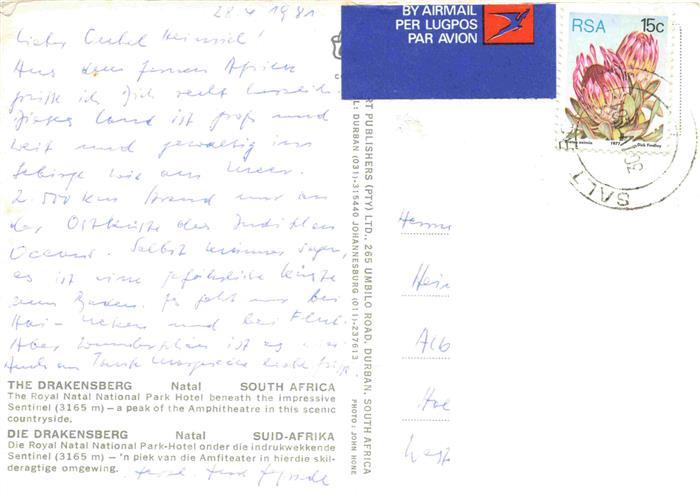 28.4.1981
Lieber Onkel Heinzel!
Aus dem fernen Afrika
grüße ich Dich recht herzlich
Dieses Land ist groß und
weit und gewaltig im
Gebirge wie am Meer.
2.500 km Strand nur an
der Ostküste des Indischen
Oceans. Selbst
es ist eine gefährliche Küste
zum Baden. Es geht nur bei
Hai-Netzen und bei Flut.
Aber wunderschön ist es
Auch an Tante liebe Grüße
BY AIRMAIL
PER LUGPOS
PAR AVION
RSA 15c
1977 Dick Findlay
SALT
ART PUBLISHERS (PTY) LTD., 265 UMBILO ROAD, DURBAN, SOUTH AFRICA
DURBAN (031)-315440 JOHANNESBURG (011)-237613
PHOTO: JOHN HONE
Herrn
Hein
Alb
Hol
West
THE DRAKENSBERG Natal SOUTH AFRICA
The Royal Natal National Park Hotel beneath the impressive
Sentinel (3165 m) — a peak of the Amphitheatre in this scenic
countryside.
DIE DRAKENSBERG Natal SUID-AFRIKA
Die Royal Natal National Park-Hotel onder die indrukwekkende
Sentinel (3165 m) — 'n piek van die Amfiteater in hierdie skil-
deragtige omgewing.